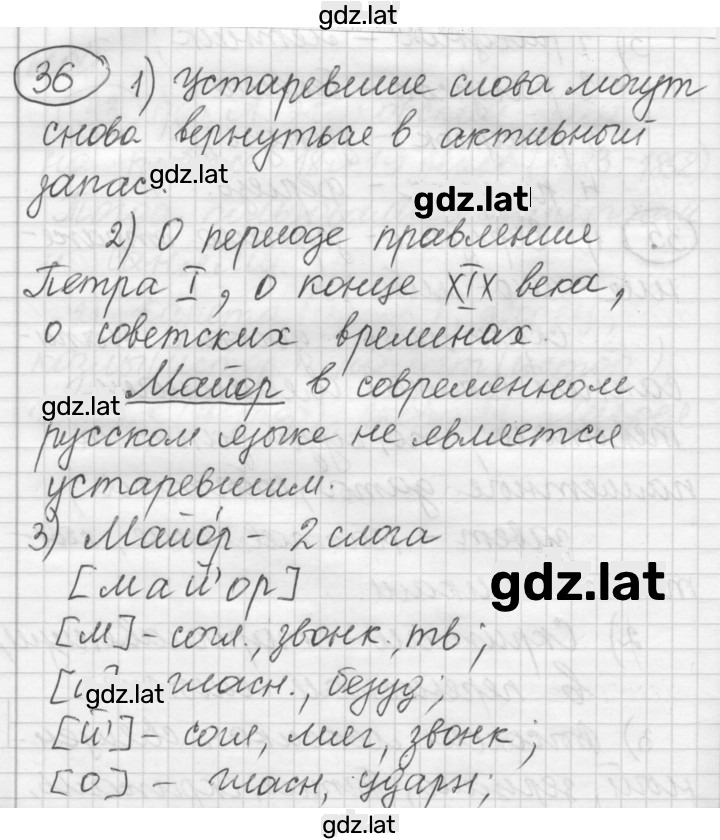 gdz.lat
36 1) Устаревшие слова могут
снова вернуться в активный
запас.
gdz.lat
gdz.lat
2) О периоде правления
Петра I, о конце XIX века,
о советских временах.
Майор в современном
gdz.lat
русском языке не является
устаревшим.
3) Майо́р - 2 слога
[май'ор]
gdz.lat
[м] - согл., звонк., тв;
гласн., безуд;
gdz.lat
[й'] - согл, мяг, звонк;
[о] - гласн, ударн;
gdz.lat